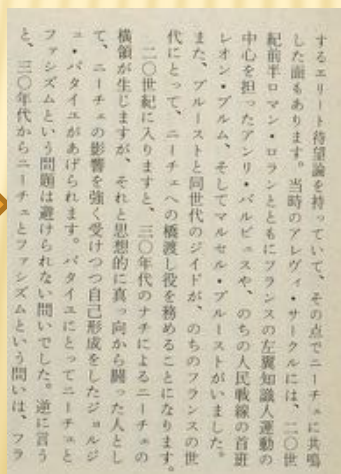 するエリート待望論を持っていて、その点でニーチェに共鳴
した面もあります。当時のアレヴィ・サークルには、二〇世
紀前半ロマン・ロランとともにフランスの左翼知識人運動の
中心を担ったアンリ・バルビュスや、のちの人民戦線の首班
レオン・ブルム、そしてマルセル・プルーストがいました。
また、プルーストと同世代のジイドが、のちのフランスの世
代にとって、ニーチェへの橋渡し役を務めることになります。
二〇世紀に入りますと、三〇年代のナチによるニーチェの
横領が生じますが、それと思想的に真っ向から闘った人とし
て、ニーチェの影響を強く受けつつ自己形成をしたジョルジ
ュ・バタイユがあげられます。バタイユにとってニーチェと
ファシズムという問題は避けられない問いでした。逆に言う
と、三〇年代からニーチェとファシズムという問いは、フラ